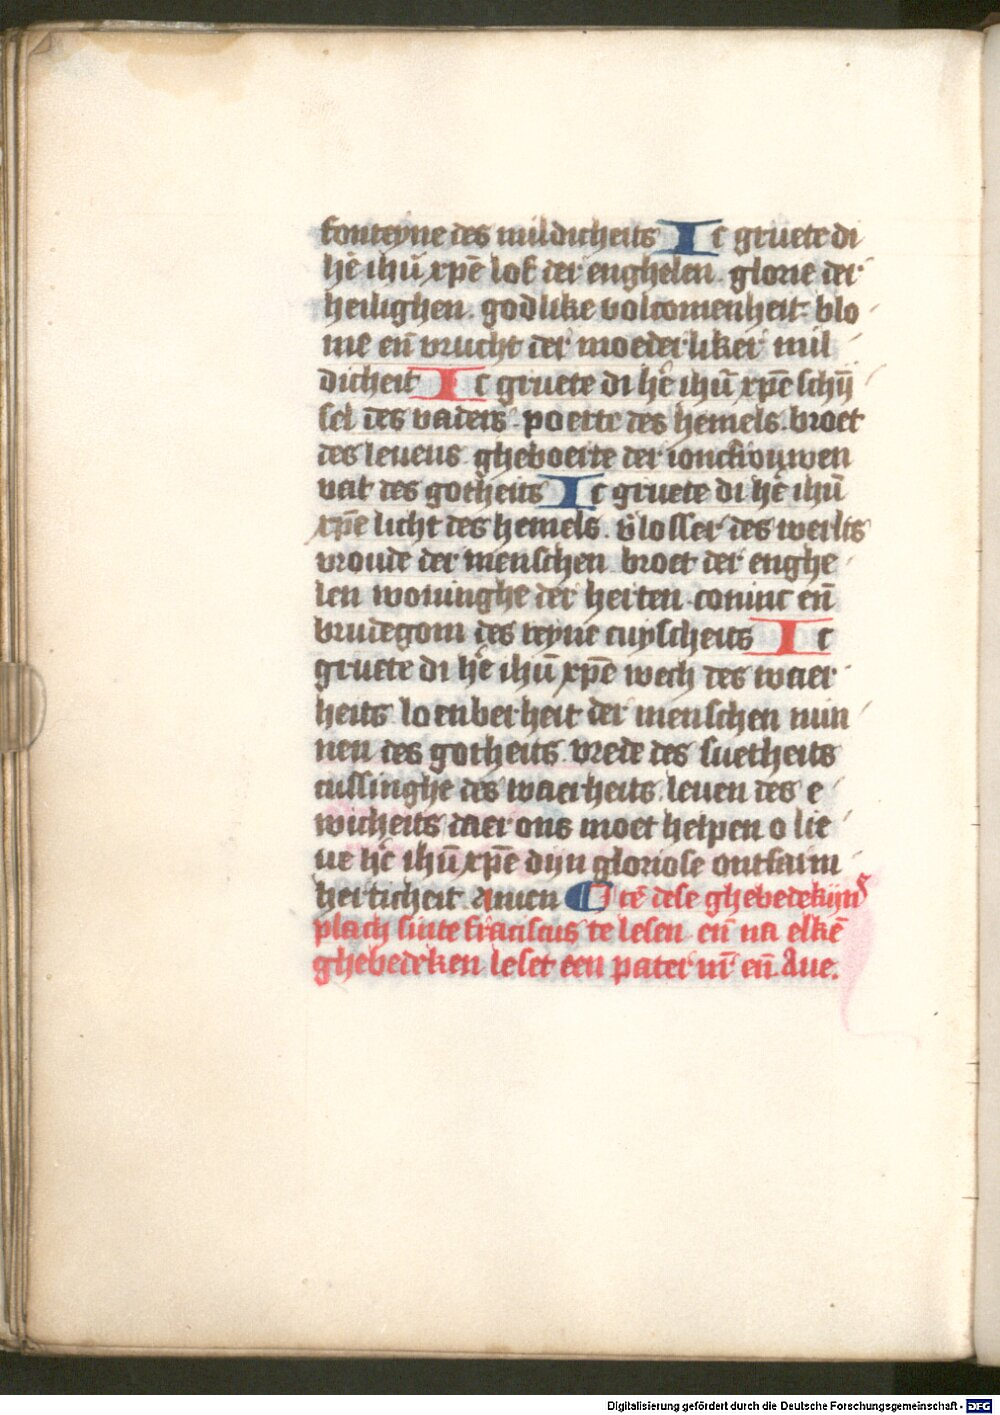 fonteyne des mildicheits Ic gruete di
h̄e ih̄u xp̄e lof der enghelen. glorie der
heilighen. godlike volcomenheit. blo
me en̄ vrucht der moederliker mil
dicheit Ic gruete di h̄e ih̄u xp̄e schij
sel des vaders. poerte des hemels. broet
des leuens gheboerte der ioncfrouwen
vat des gotheits Ic gruete di h̄e ih̄u
xp̄e licht des hemels. v̄losser des werlts
vroude der menschen broet der enghe
len woninghe der herten. coninc en̄
brudegom des reynre cuyscheits Ic
gruete di h̄e ih̄u xp̄e wech des waer
heits loenberheit der menschen min
nen des gotheits vrede des suetheits
cussinghe des waerheits leuen des e
wicheits daer ons moet helpen o lie
ue h̄e ih̄u xp̄e dijn gloriose ontfarm
herticheit. amen Itē dese ghebedekijns
plach sinte frāciscus te lesen en̄ na elkē
ghebedeken leset een pater nr̄ en̄ Aue.
Digitalisierung gefördert durch die Deutsche Forschungsgemeinschaft - DFG